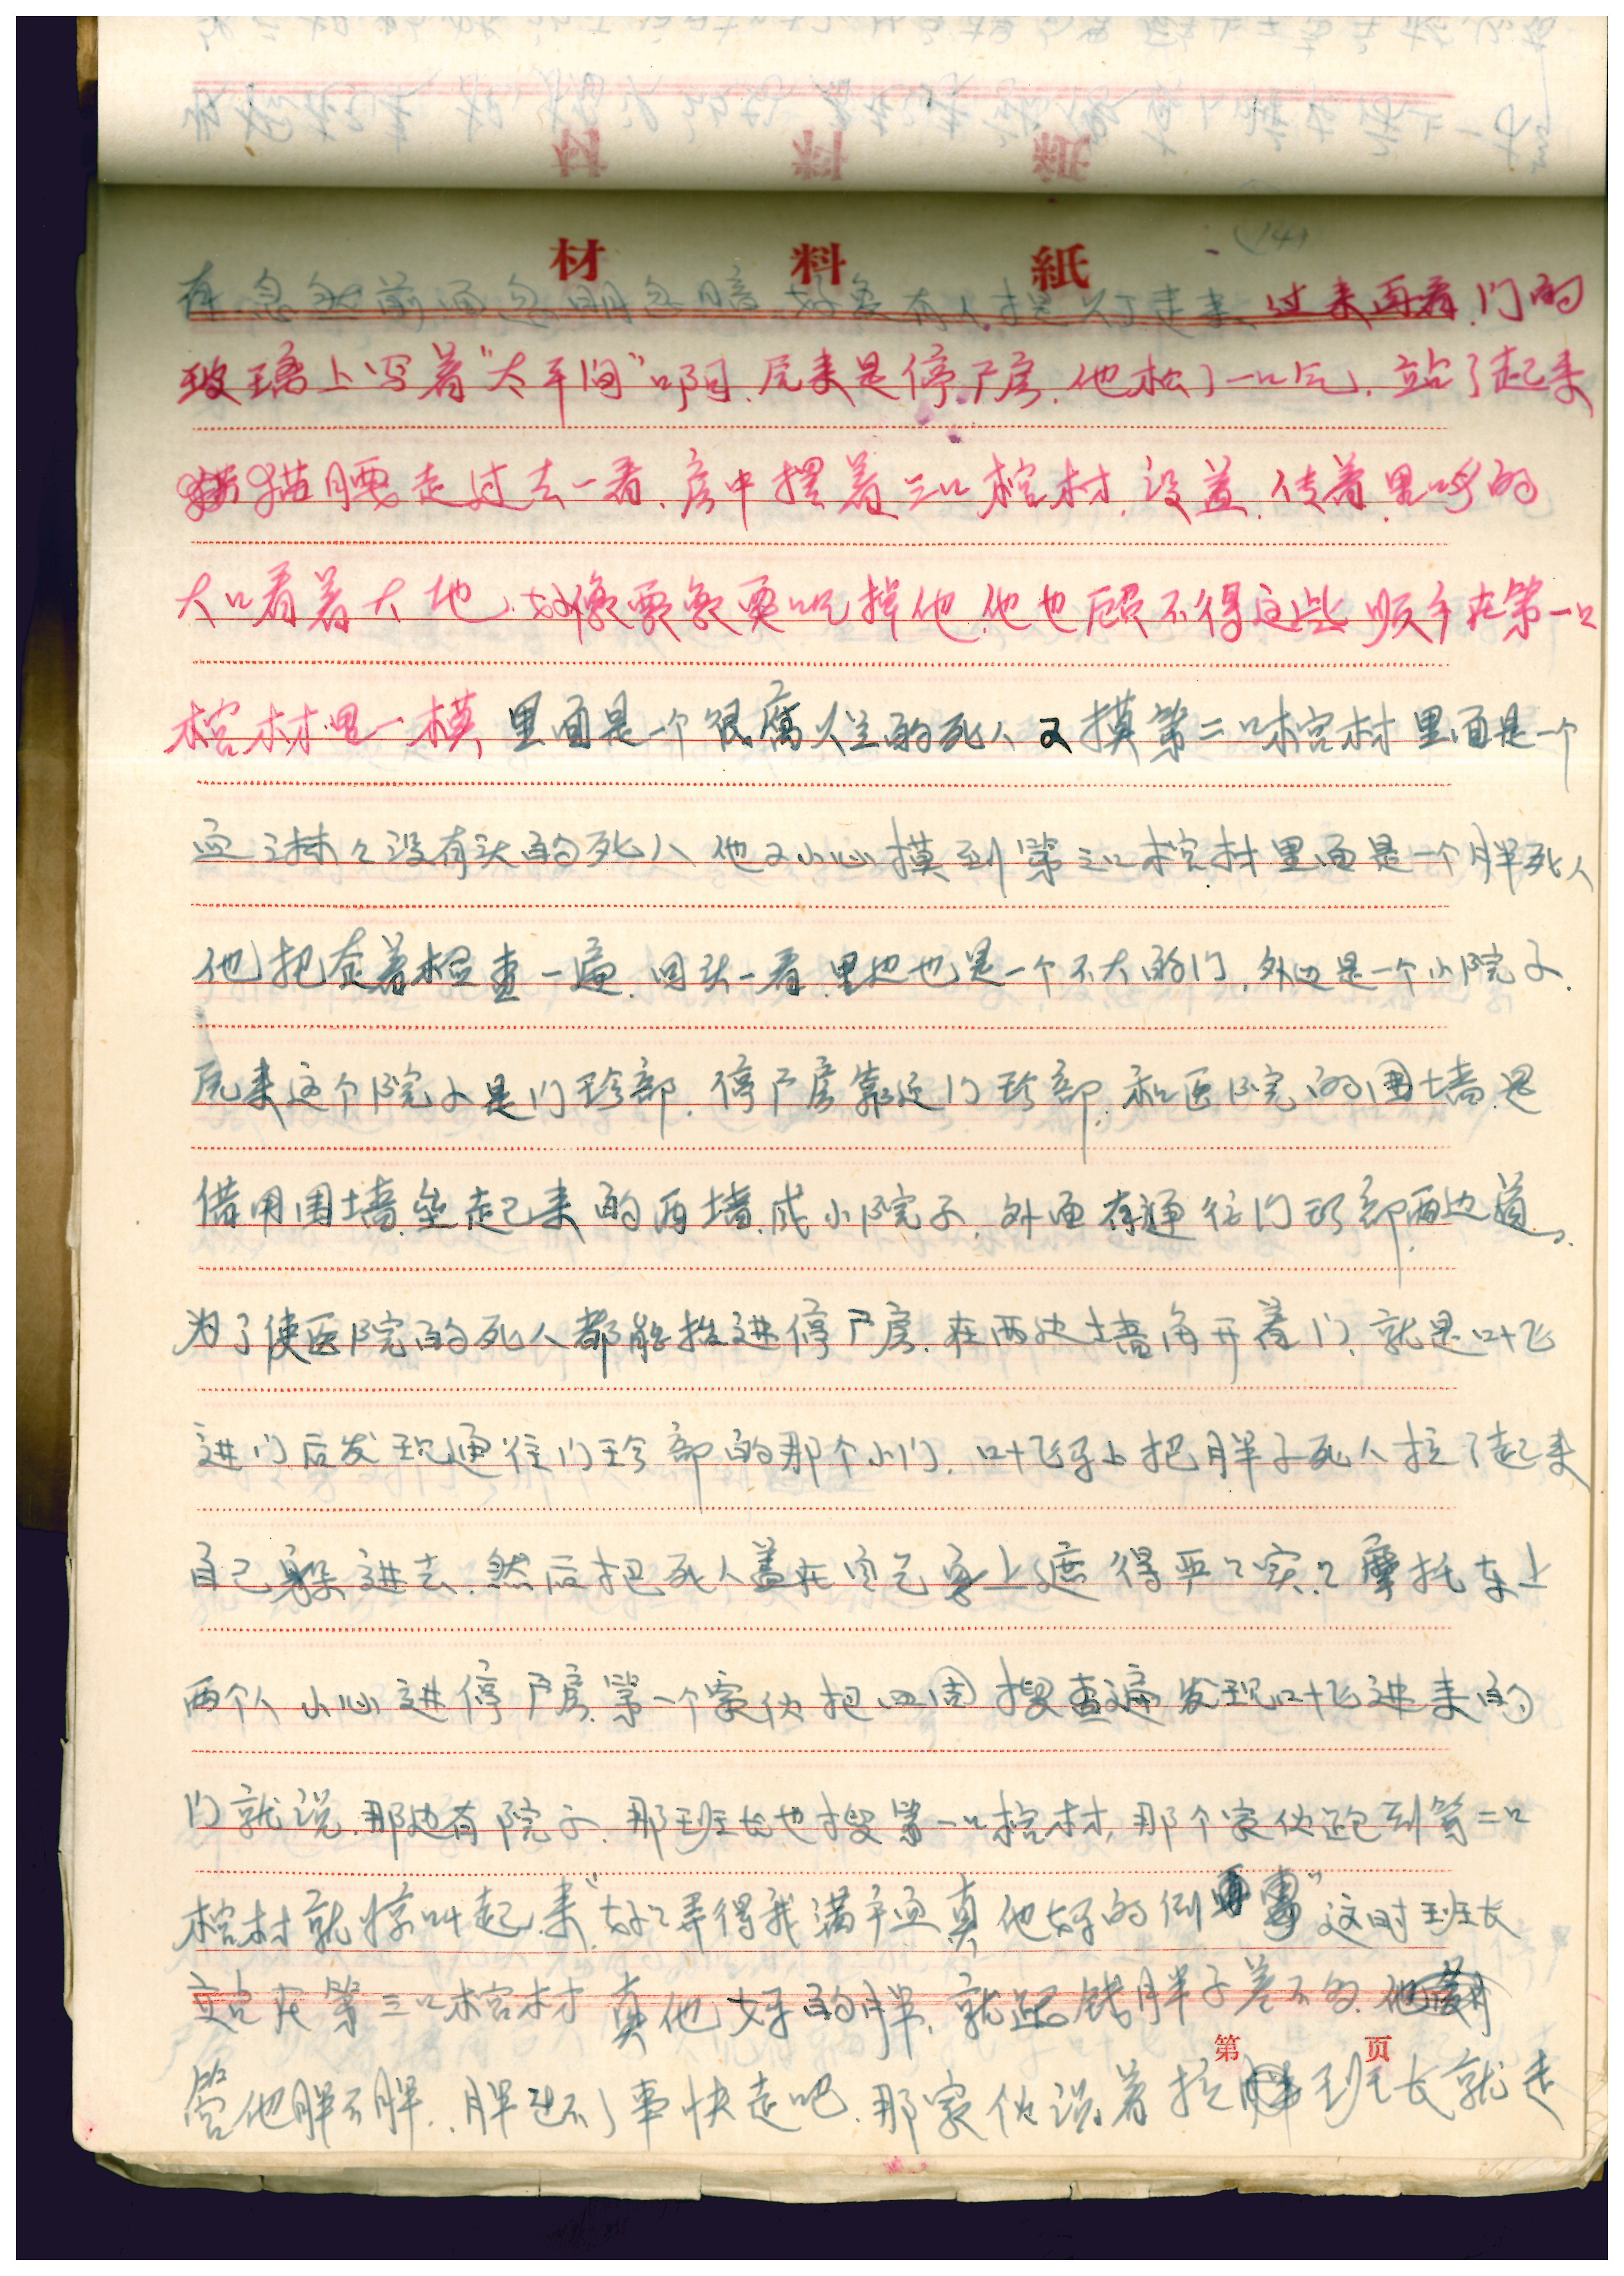 材料紙
(14)
存忽然前面忽明忽暗.好象有人提灯走来.过来再看.门的
玻璃上写着"太平间"啊.原来是停尸房.他松了一口气.站了起来
猫腰走过去一看.房中摆着三口棺材.没盖.传着黑呼的
大口看着大地.好像要象要吃掉他.他也顾不得这些顺手在第一口
棺材里一模里面是个很腐烂的死人又摸第二口棺材里面是一个
血淋々没有头的死人他又小心摸到第三口棺材里面是一个胖死人
他把查着检查一遍.回头一看.里边也是一个不大的门.外边是一个小院子.
原来这个院子是门珍部.停尸房靠近门珍部.和医院的围墙是
借用围墙垒起来的两墙.成小院子.外面有通往门珍部两边道.
为了使医院的死人都能抬进停尸房.在两边墙角开着门.就是叶飞
进门后发现通往门珍部的那个小门.叶飞马上把胖子死人拉了起来
自己躲进去.然后把死人盖在自己身上遮得严々实々摩托车上
两个人小心进停尸房.第一个家伙把四周搜查遍发现叶飞进来的
门就说.那边有院子.那班长也搜第一口棺材,那个家伙跑到第二口
棺材就惊叫起来"好々弄得我满手血真他好的倒霉"这时班长
站在第三口棺材真他好的胖.就跟钱胖子差不多.
管他胖不胖..胖碍不了事快走吧.那家伙说着拉班长就走
第 页